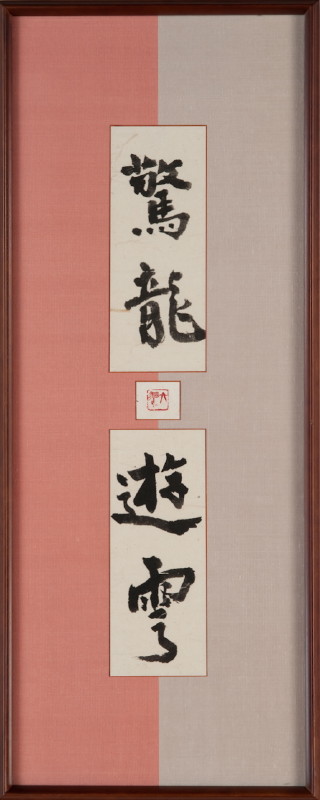 驚龍
遊雲